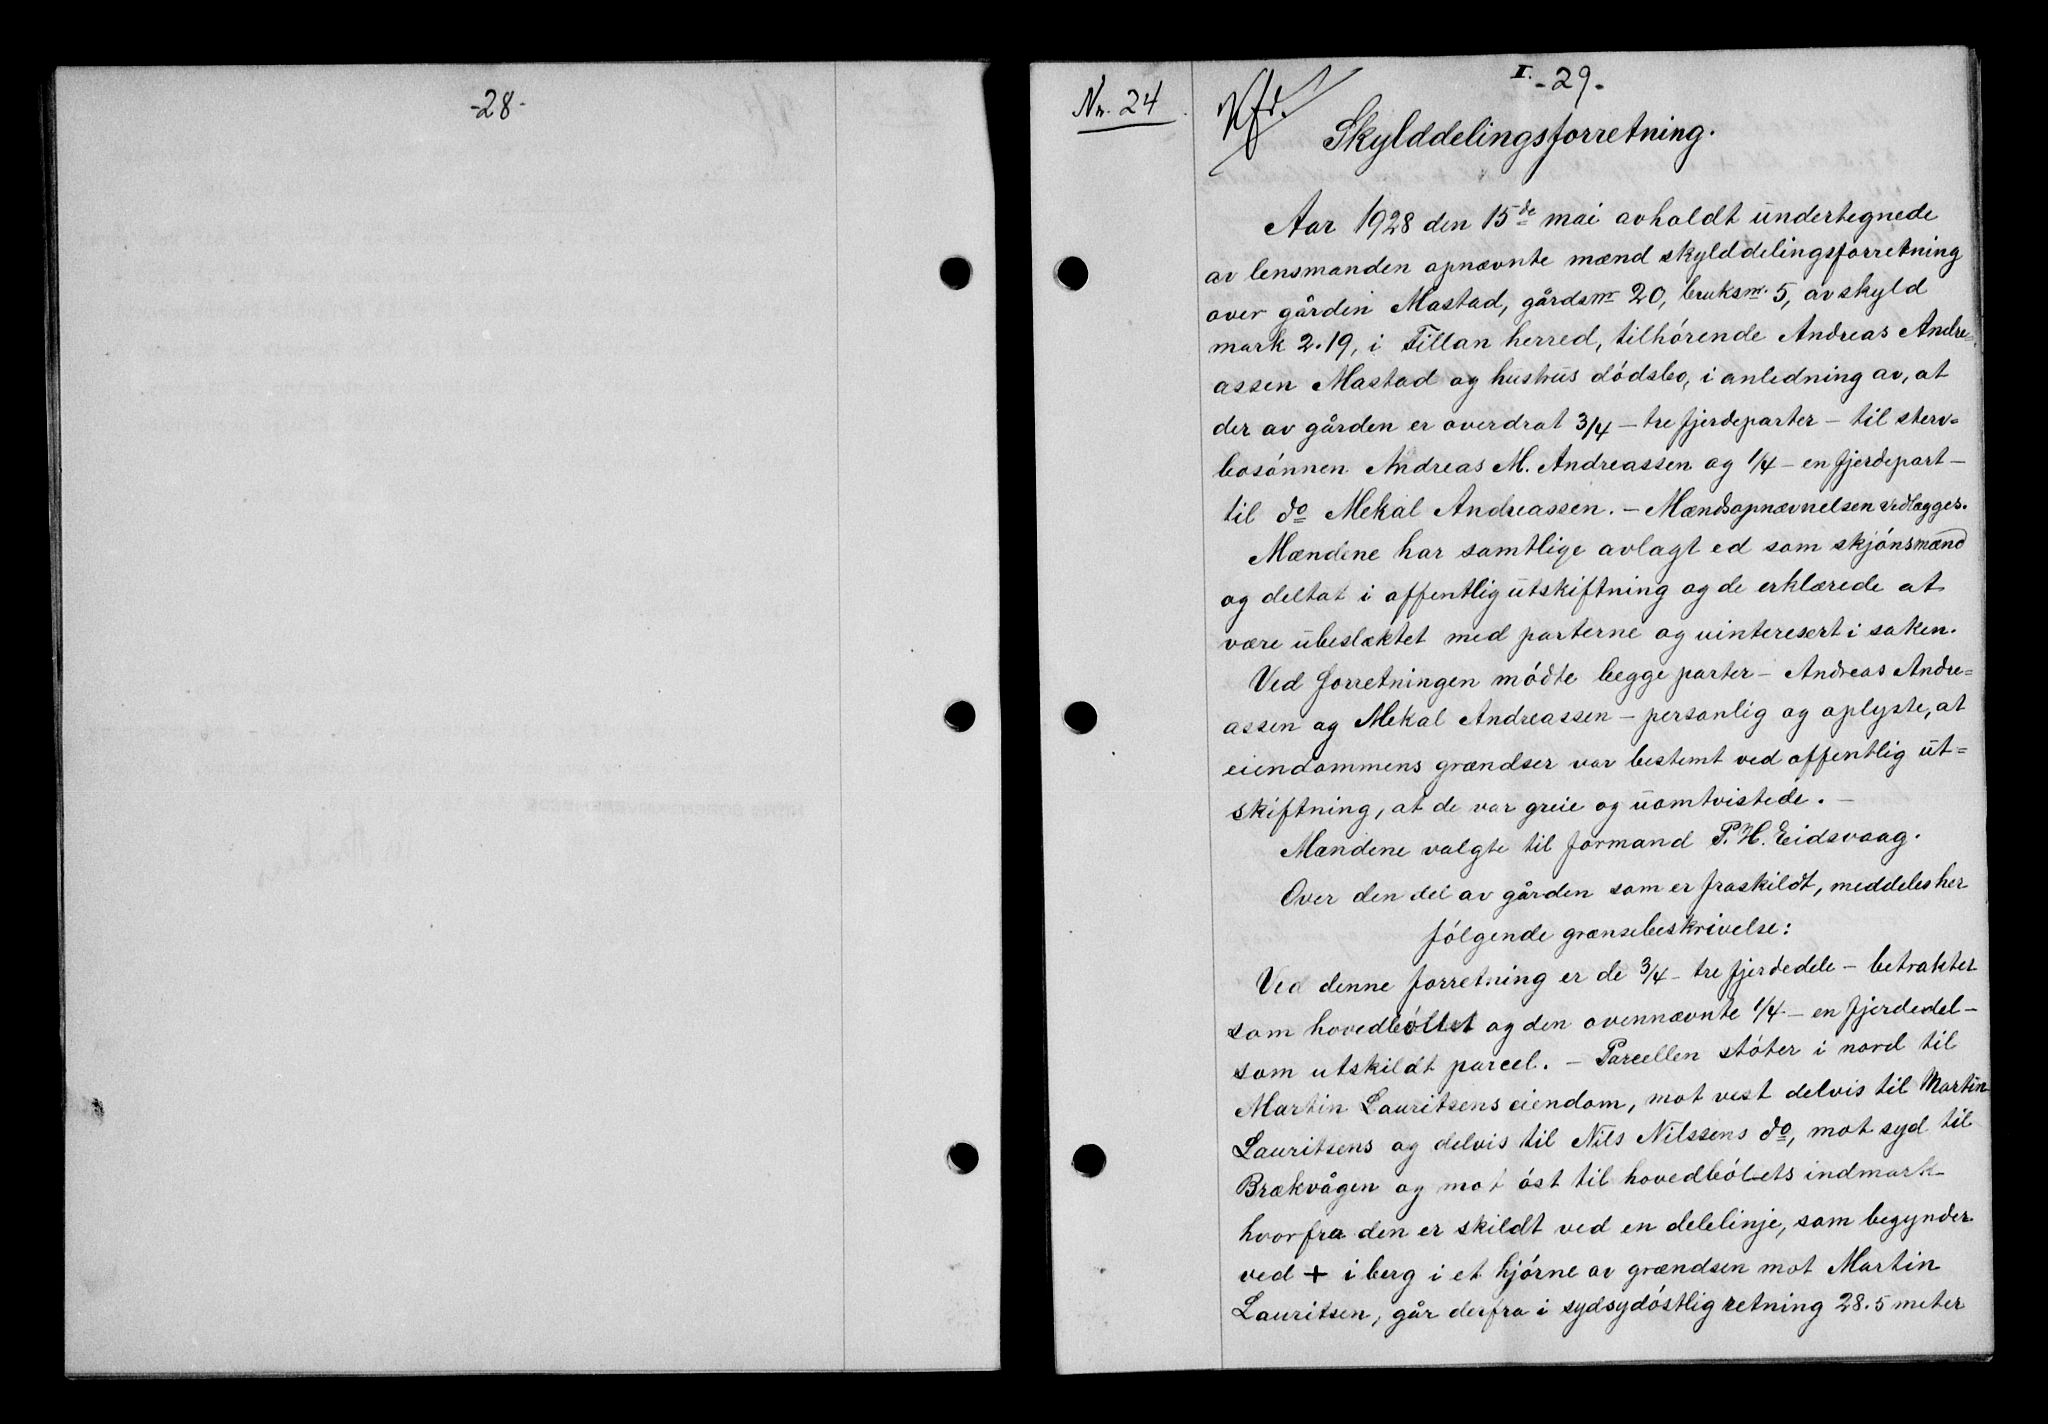 -28-
Nr. 24
I.
-29-
Skylddelingsforretning.
Aar 1928 den 15de mai avholdt undertegnede
av lensmanden opnævnte mænd skylddelingsforretning
over gården Mastad, gårdsnr 20, bruksnr. 5, av skyld
mark 2.19, i Fillan herred, tilhørende Andreas Andre=
assen Mastad og hustrus dødsbo, i anledning av, at
der av gården er overdrat 3/4 - tre fjerdeparter - til sterv=
bosønnen Andreas M. Andreassen og 1/4 - en fjerdepart -
til do Mekal Andreassen. - Mændsopnævnelsen vedlægges.
Mændene har samtlige avlagt ed som skjønsmænd
og deltat i offentlig utskiftning og de erklærede at
være ubeslæktet med parterne og uinteresert i saken.
Ved forretningen mødte begge parter - Andreas Andre=
assen og Mekal Andreassen - personlig og oplyste, at
eiendommens grændser var bestemt ved offentlig ut=
skiftning, at de var greie og uomtvistede. -
Mændene valgte til formand P. H. Eidsvaag.
Over den del av gården som er fraskildt, meddeles her
følgende grænsebeskrivelse:
Ved denne forretning er de 3/4 - tre fjerdedele - betraktet
som hovedbøllet og den ovennævnte 1/4 - en fjerdedel -
som utskildt parcel. - Parcellen støter i nord til
Martin Lauritsens eiendom, mot vest delvis til Martin
Lauritsens og delvis til Nils Nilssens do, mot syd til
Brækvågen og mot øst til hovedbølets indmark
hvorfra den er skildt ved en delelinje, som begynder
ved + i berg i et hjørne av grændsen mot Martin
Lauritsen, går derfra i sydsydøstlig retning 28.5 meter